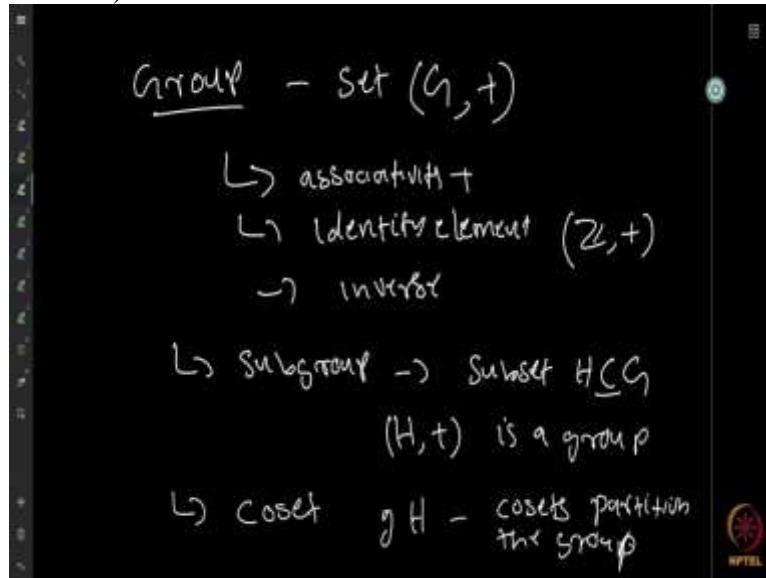 Group - Set (G, +)
↳ associativity +
↳ identity element (ℤ, +)
→ inverse
↳ Subgroup → Subset H ⊆ G
(H, +) is a group
↳ Coset gH - cosets partition
the group
NPTEL